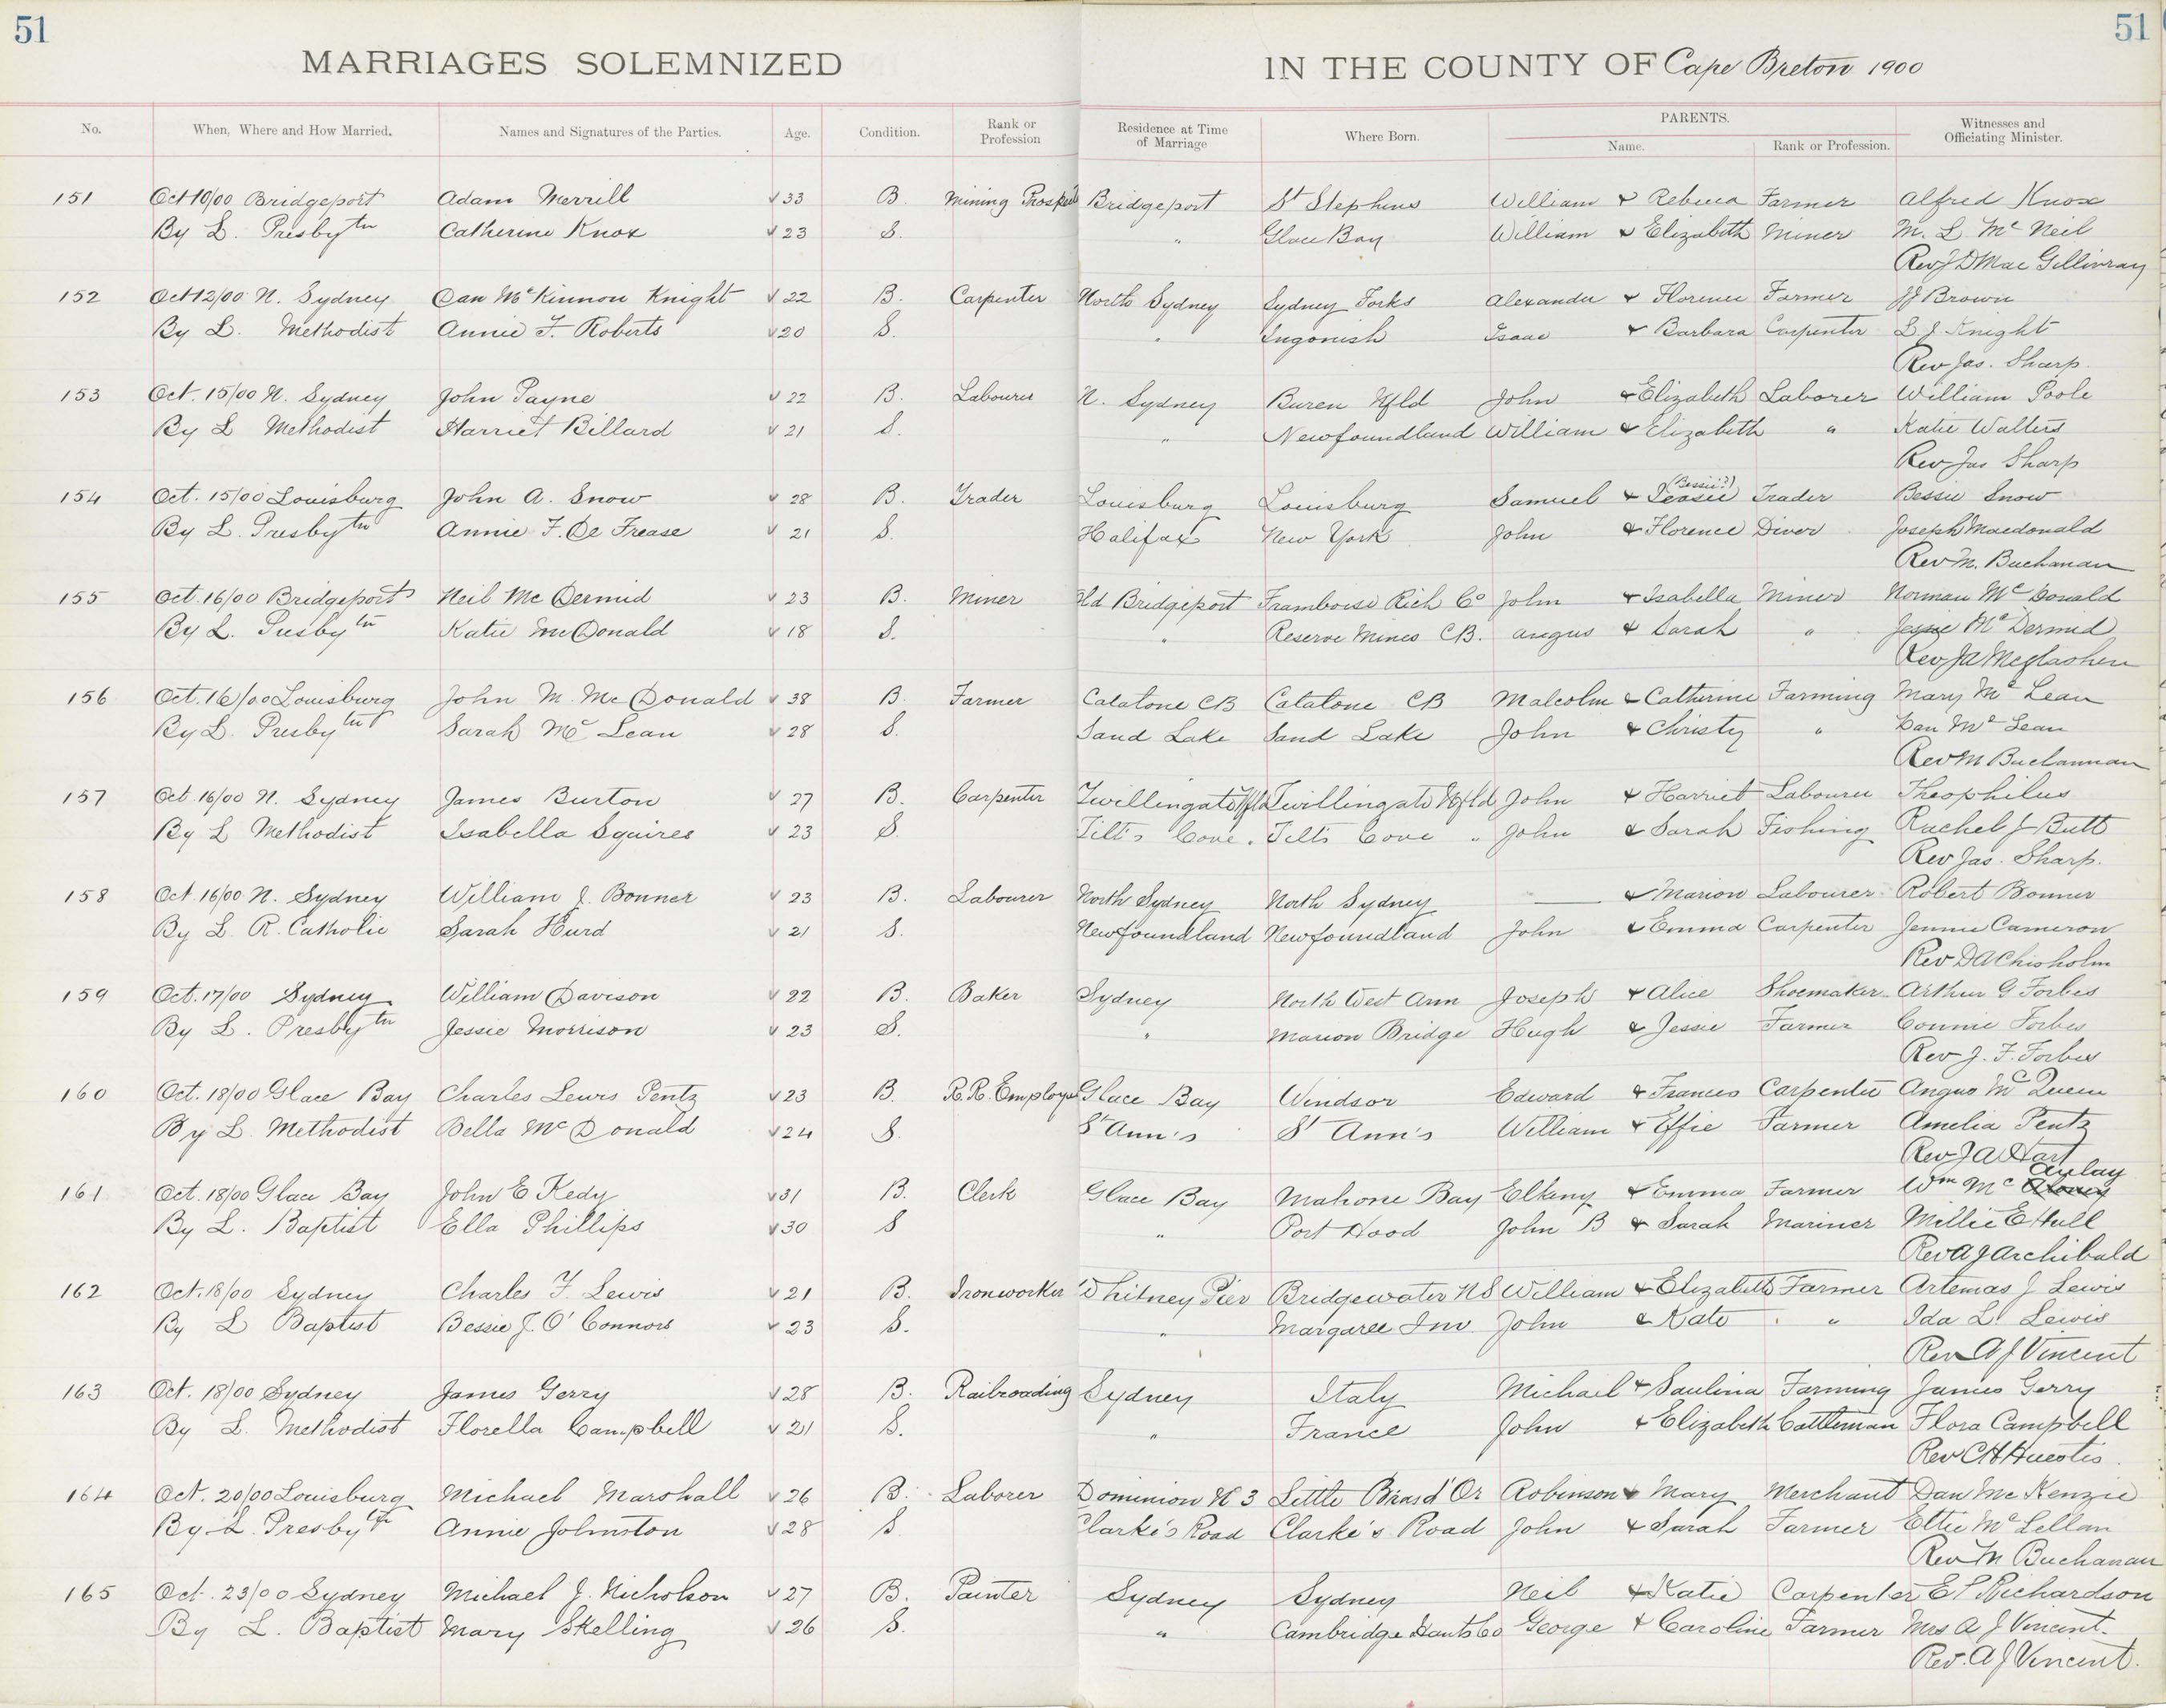 51 51
MARRIAGES SOLEMNIZED IN THE COUNTY OF Cape Breton 1900
No. When, Where and How Married. Names and Signatures of the Parties. Age. Condition. Rank or Profession Residence at Time of Marriage Where Born. PARENTS. Name. Rank or Profession. Witnesses and Officiating Minister.
151 Oct 10/00 Bridgeport Adam Merrill √ 33 B. Mining Bridgeport St Stephens William & Rebecca Farmer Alfred Knox
By L. Presbytn Catherine Knox √ 23 S. " Glace Bay William & Elizabeth Miner M. L Mc Neil
Rev J D Mac Gillivray
152 Oct 12/00 N. Sydney Dan McKinnon Knight √ 22 B. Carpenter North Sydney Sydney Forks Alexander & Florence Farmer JJ Brown
By L. Methodist Annie F. Roberts √ 20 S. " Ingonish Isaac & Barbara Carpenter L J Knight
Rev Jas. Sharp.
153 Oct. 15/00 N. Sydney John Payne √ 22 B. Labourer N. Sydney Buren Nfld John & Elizabeth Laborer William Poole
By L Methodist Harriet Billard √ 21 S. " Newfoundland William & Elizabeth " Katie Walters
Rev Jas Sharp
154 Oct. 15/00 Louisburg John A. Snow √ 28 B. Trader Louisburg Louisburg Samuel & Jessie (Bessie?) Trader Bessie Snow
By L. Presbytn Annie F. De Frease √ 21 S. Halifax New York John & Florence Diver Joseph Macdonald
Rev M. Buchanan
155 Oct. 16/00 Bridgeport Neil Mc Dermid √ 23 B. Miner Old Bridgeport Framboise Rich Co John & Isabella Miner Norman Mc Donald
By L. Presbytn Katie McDonald √ 18 S. " Reserve Mines CB. Angus & Sarah " Jessie Mc Dermid
Rev JA Mcglashen
156 Oct. 16/00 Louisburg John M. Mc Donald √ 38 B. Farmer Catatone CB Catatone CB Malcolm & Catherine Farming Mary Mc Lean
By L. Presbytn Sarah Mc Lean √ 28 S. Sand Lake Sand Lake John & Christy " Dan Mc Lean
Rev M Buchannan
157 Oct 16/00 N. Sydney James Burton √ 27 B. Carpenter Twillingate Nfld Twillingate Nfld John & Harriet Labourer Theophilus
By L Methodist Isabella Squires √ 23 S. Tilt's Cove " Tilts Cove " John & Sarah Fishing Rachel J Butt
Rev Jas. Sharp.
158 Oct 16/00 N. Sydney William J. Bonner √ 23 B. Labourer North Sydney North Sydney — & Marion Labourer Robert Bonner
By L R. Catholic Sarah Hurd √ 21 S. Newfoundland Newfoundland John & Emma Carpenter Jennie Cameron
Rev DA Chisholm
159 Oct. 17/00 Sydney William Davison √ 22 B. Baker Sydney North West Arm Joseph & Alice Shoemaker Arthur G Forbes
By L. Presbytn Jessie Morrison √ 23 S. " Marion Bridge Hugh & Jessie Farmer Connie Forbes
Rev J. F. Forbes
160 Oct. 18/00 Glace Bay Charles Lewis Pentz √ 23 B. R.R. Employee Glace Bay Windsor Edward & Frances Carpenter Angus Mc Queen
By L. Methodist Bella Mc Donald √ 24 S. St Ann's St Ann's William & Effie Farmer Amelia Pentz
Rev J A Hart
161 Oct. 18/00 Glace Bay John E Kedy √ 31 B. Clerk Glace Bay Mahone Bay Elkany & Emma Farmer Wm Mc Aulay
By L. Baptist Ella Phillips √ 30 S " Port Hood John B & Sarah Mariner Millie E Hull
Rev A J Archibald
162 Oct. 18/00 Sydney Charles F. Lewis √ 21 B. Ironworker Whitney Pier Bridgewater NS William & Elizabeth Farmer Artemas J Lewis
By L Baptist Bessie J. O'Connors √ 23 S. " Margaree Inv John & Kate " Ida L. Lewis
Rev A J Vincent
163 Oct. 18/00 Sydney James Gerry √ 28 B. Railroading Sydney Italy Michael & Saulina Farming James Gerry
By L. Methodist Florella Campbell √ 21 S. " France John & Elizabeth Cattleman Flora Campbell
Rev CH Huestis.
164 Oct. 20/00 Louisburg Michael Marshall √ 26 B. Laborer Dominion N 3 Little Bras d'Or Robinson & Mary Merchant Dan Mc Kenzie
By L. Presbytn Annie Johnston √ 28 S Clarke's Road Clarke's Road John & Sarah Farmer Ettie McLellan
Rev M Buchanan
165 Oct. 23/00 Sydney Michael J. Nicholson √ 27 B. Painter Sydney Sydney Neil & Katie Carpenter E P Richardson
By L. Baptist Mary Skelling √ 26 S. " Cambridge Hants Co George & Caroline Farmer Mrs A J Vincent.
Rev. A J Vincent.